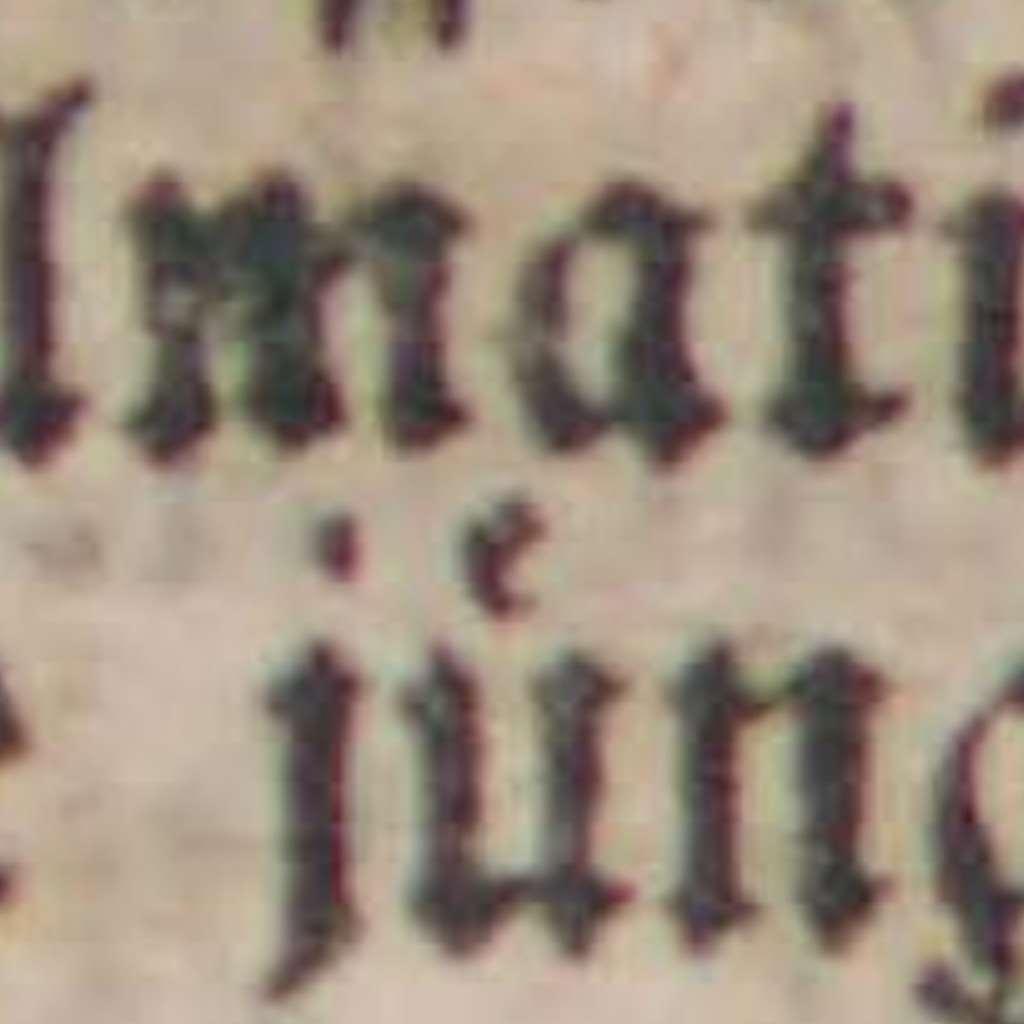 lmati
jůng